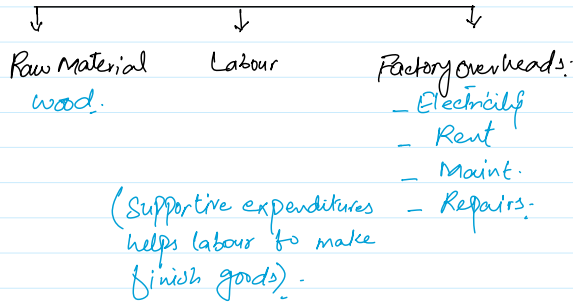 Raw Material Labour Factory overheads.
wood. - Electricity
- Rent
- Maint.
(Supportive expenditures - Repairs.
helps labour to make
finish goods).